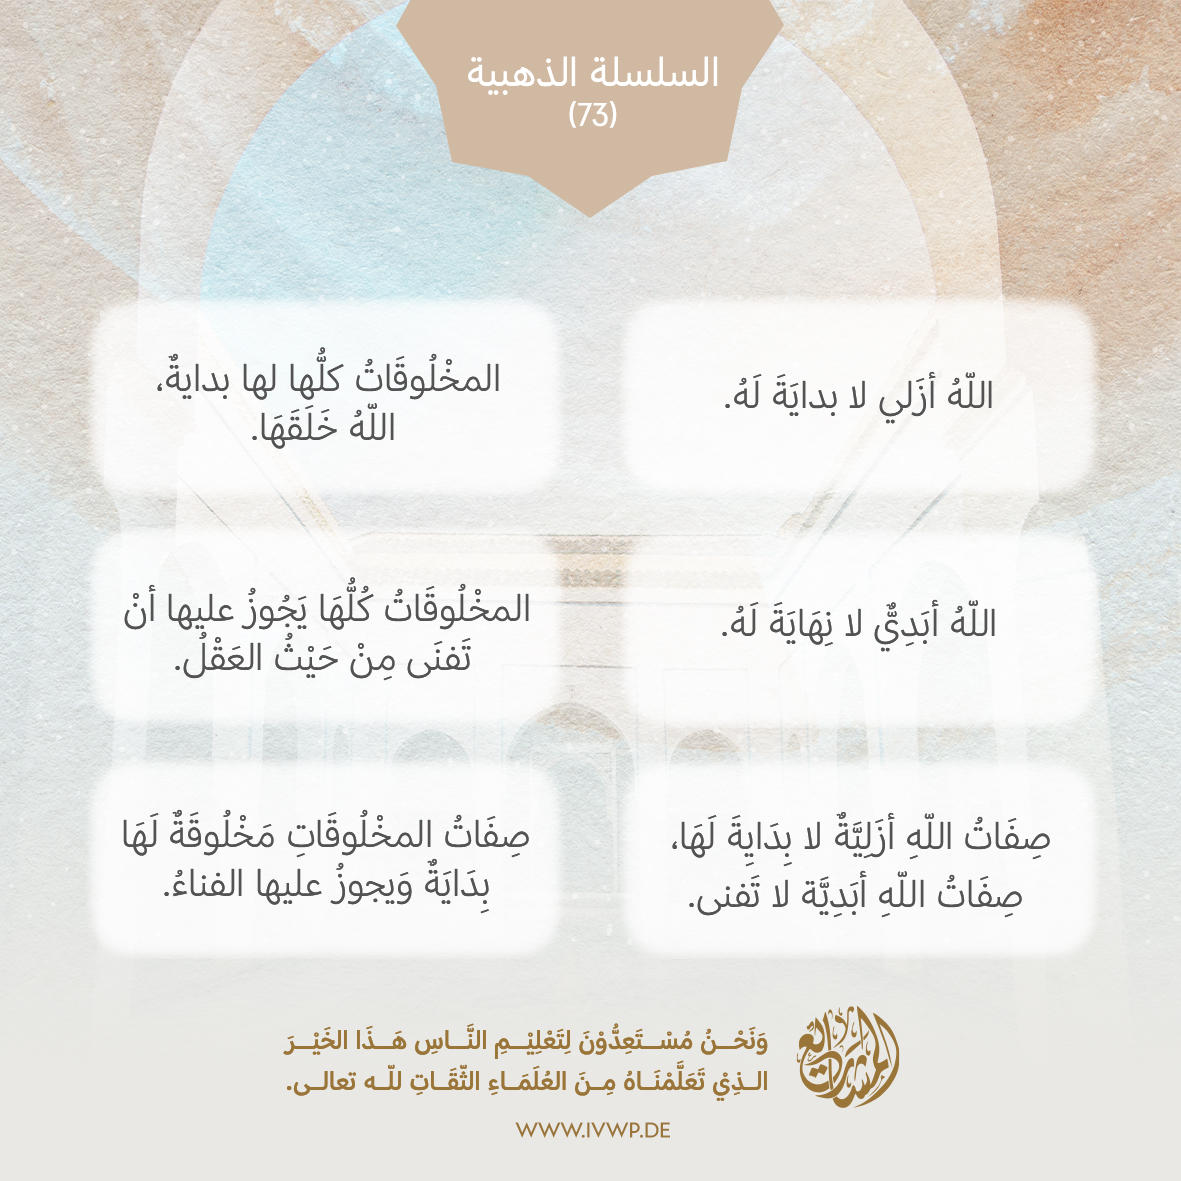 السلسلة الذهبية
(73)
اللّهُ أزَلي لا بدايَةَ لَهُ.
المخْلُوقَاتُ كلُّها لها بدايةٌ،
اللّهُ خَلَقَهَا.
اللّهُ أبَدِيٌّ لا نِهَايَةَ لَهُ.
المخْلُوقَاتُ كُلُّهَا يَجُوزُ عليها أنْ
تَفنَى مِنْ حَيْثُ العَقْلُ.
صِفَاتُ اللّهِ أزَلِيَّةٌ لا بِدَايِةَ لَهَا،
صِفَاتُ اللّهِ أبَدِيَّة لا تَفنى.
صِفَاتُ المخْلُوقَاتِ مَخْلُوقَةٌ لَهَا
بِدَايَةٌ وَيجوزُ عليها الفناءُ.
وَنَحْـــنُ مُسْـــتَعِدُّوْنَ لِتَعْلِيْـــمِ النَّـــاسِ هَـــذَا الخَيْـــرَ
الـــذِيْ تَعَلَّمْنَـــاهُ مِـــنَ العُلَمَـــاءِ الثِّقَـــاتِ للّـــه تعالـــى.
WWW.IVWP.DE